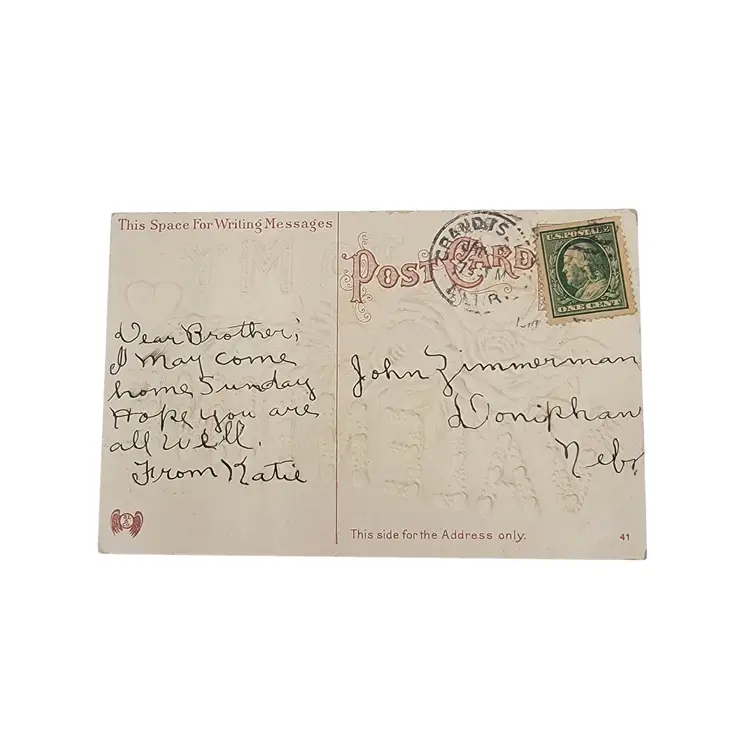 This Space For Writing Messages
POST CARD
U.S. POSTAGE
ONE CENT
Dear Brother;
I may come
home Sunday
Hope you are
all well.
From Katie
John Zimmerman
Doniphan
Nebr
This side for the Address only.
41